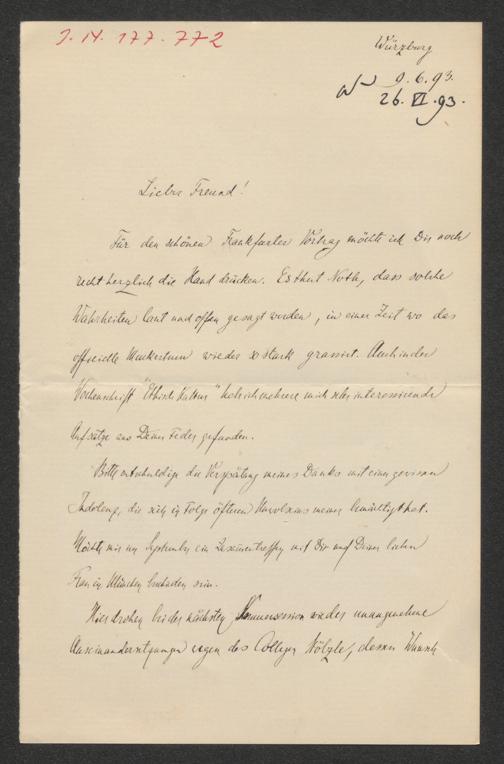 J. N. 177.772
Würzburg
9.6.93.
26. VI. 93.
Lieber Freund!
Für den schönen Frankfurter Vortrag möchte ich Dir noch
recht herzlich die Hand drücken. Es thut Noth, dass solche
Wahrheiten laut und offen gesagt werden, in einer Zeit wo das
officielle Muckertum wieder so stark grassirt. Auch in der
Wochenschrift "Ethische Kultur" habe ich mehrere mich sehr interessirende
Aufsätze aus Deiner Feder gefunden.
Bitte entschuldige die Verspätung meines Danks mit einer gewissen
Indolenz, die sich in Folge öfteren Unwolseins meiner bemächtigt hat.
Möchte mir im September ein Zusammentreffen mit Dir und Deiner lieben
Frau in München beschieden sein.
Hier drohen bei der nächsten Kammersession wieder unangenehme
Auseinandersetzungen wegen des Collegen Wölzle, dessen Wunsch